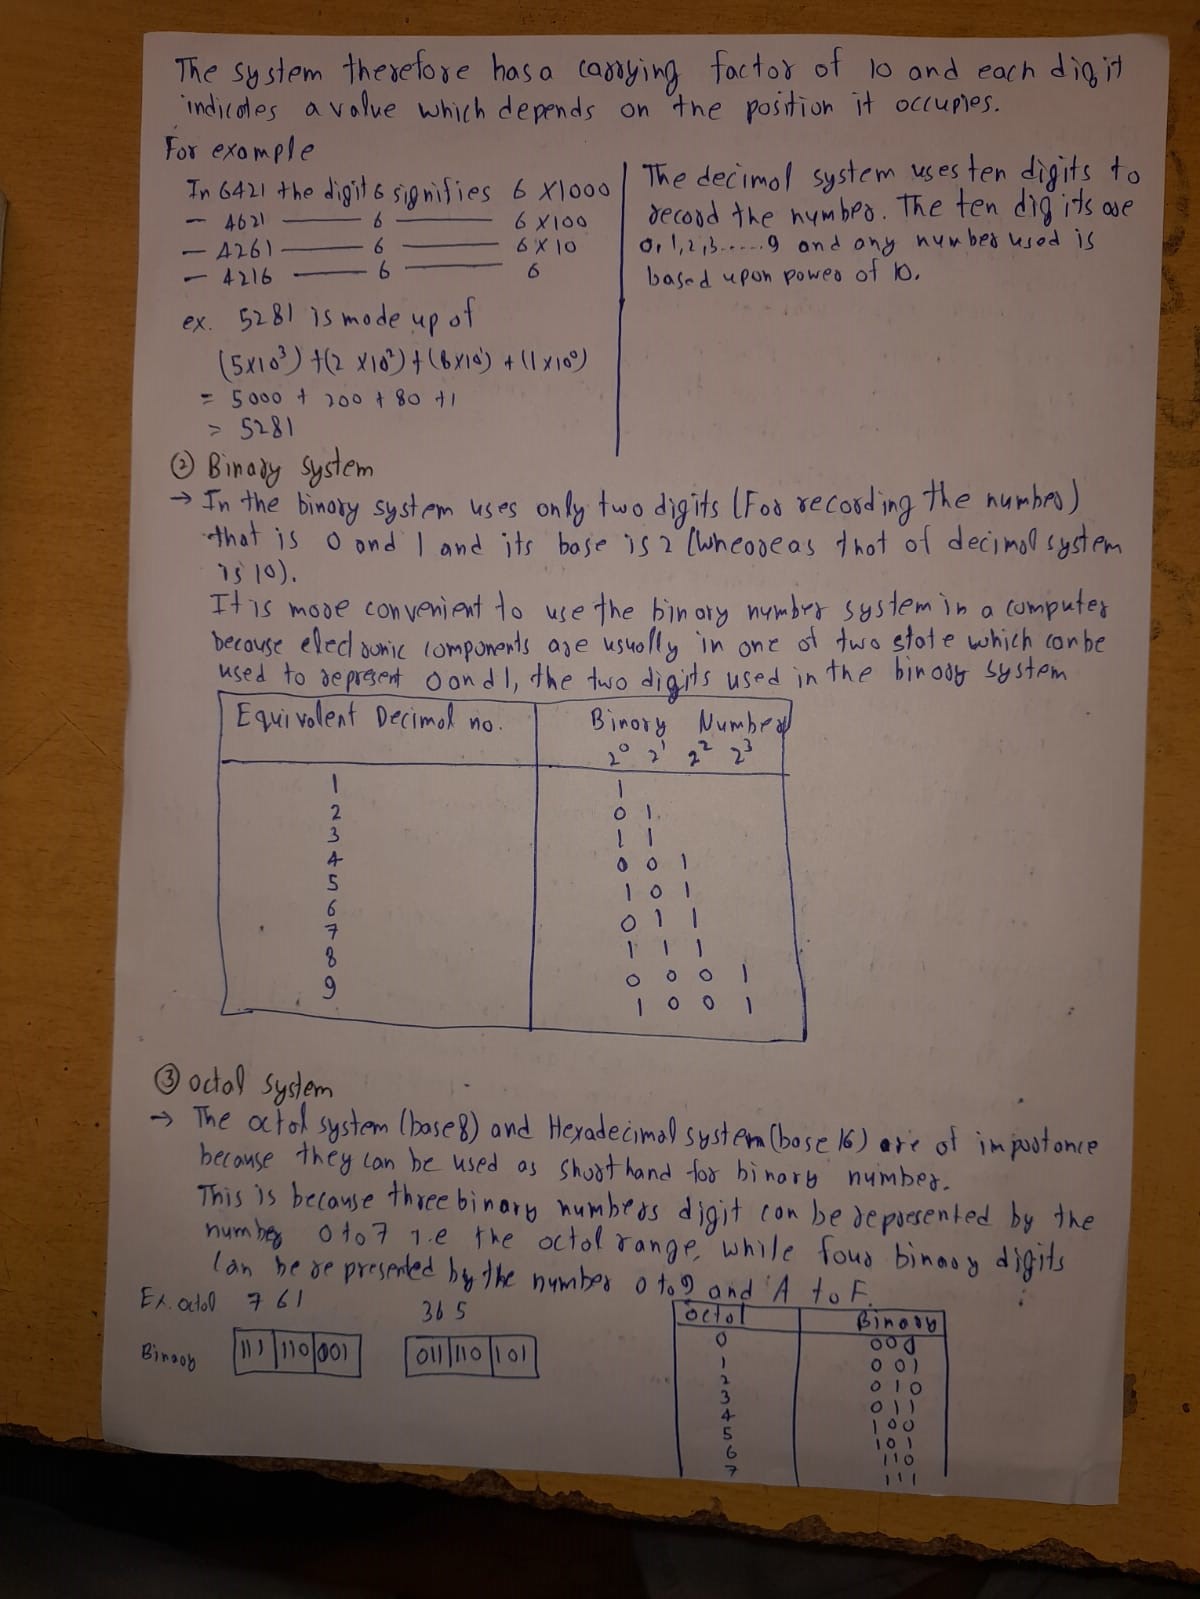 The system therefore has a carrying factor of 10 and each digit
indicates a value which depends on the position it occupies.
For example
In 6421 the digit 6 signifies 6 X1000
— 4621 —— 6 —— 6 X100
— 4261 —— 6 —— 6 X 10
— 4216 —— 6 —— 6
ex. 5281 is made up of
(5x10³) +(2 X10²) + (8x10¹) + (1x10⁰)
= 5000 + 200 + 80 +1
= 5281
The decimal system uses ten digits to
record the number. The ten digits are
0,1,2,3.....9 and any number used is
based upon power of 10.
② Binary system
→ In the binary system uses only two digits (For recording the number)
that is 0 and 1 and its base is 2 (Whereas that of decimal system
is 10).
It is more convenient to use the binary number system in a computer
because electronic components are usually in one of two state which can be
used to represent 0 and 1, the two digits used in the binary system
Equivalent Decimal no. Binary Number
2⁰ 2¹ 2² 2³
1 1
2 0 1
3 1 1
4 0 0 1
5 1 0 1
6 0 1 1
7 1 1 1
8 0 0 0 1
9 1 0 0 1
③ octal system
→ The octal system (base 8) and Hexadecimal system (base 16) are of importance
because they can be used as short hand for binary number.
This is because three binary numbers digit can be represented by the
number 0 to 7 i.e the octal range, while four binary digits
Can be represented by the number 0 to 9 and A to F.
Ex. octal 7 6 1 3 6 5
Binary 111 110 001 011 110 101
octal Binary
0 000
1 001
2 010
3 011
4 100
5 101
6 110
7 111